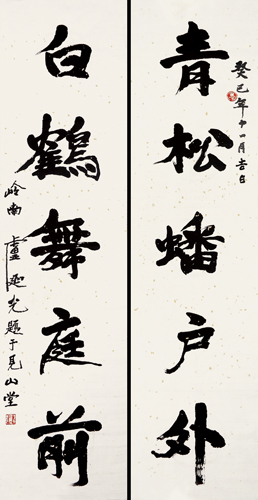 青松蟠户外
癸巳年十一月吉日
白鶴舞庭前
岭南盧延光题于見山堂